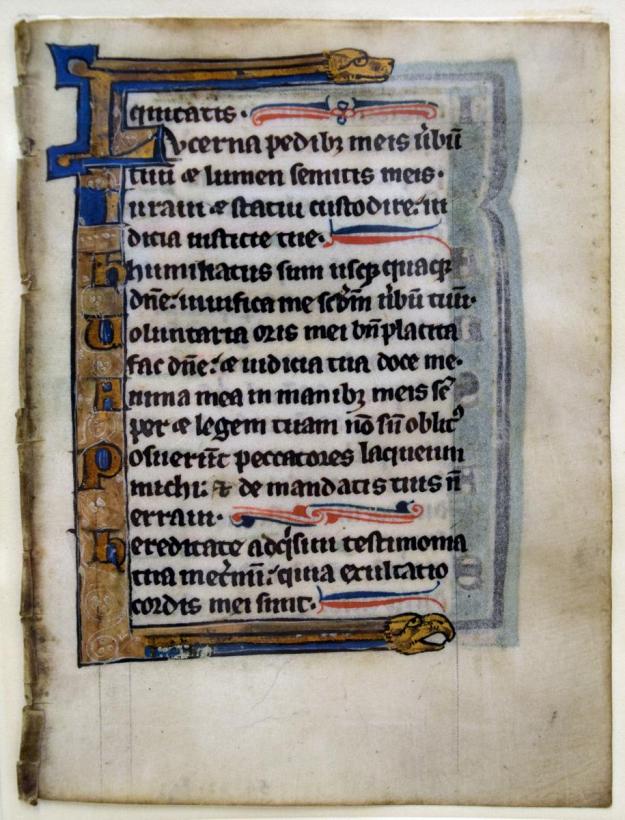 quitatis.
Lucerna pedibꝫ meis ũbũ
tuũ ⁊ lumen semitis meis.
iuraui ⁊ statui custodire: iu
dicia iusticie tue.
humiliatus sum usqꝫ quaqꝫ
dñe: uiuifica me scd̃m ũbũ tuũ.
Voluntaria oris mei bñplacita
fac dñe: ⁊ iudicia tua doce me.
Anima mea in manibꝫ meis sẽ
per ⁊ legem tuam nõ sũ oblitꝰ
Posuerũt peccatores laqueum
michi: ⁊ de mandatis tuis ñ
erraui.
hereditate adq̃siui testimonia
tua ĩ et̃nũ: quia exultatio
cordis mei sunt.